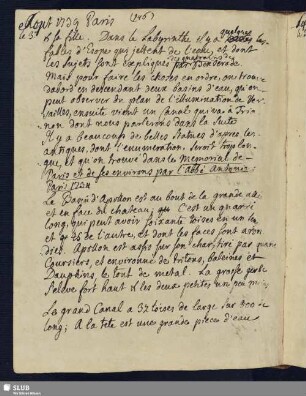 Aout 1739 Paris (216)
le 5
& sa fille. Dans le Labyrinthe il y a quelques
fables d'Esope qui jettent de l'eau, et dont
les sujets sont expliqués par
Mais pour faire les choses en ordre, on trou-
ve d'abord en descendant deux bassins d'eau, qu'on
peut observer du plan de l'illumination de Ver-
sailles, ensuite vient un Canal qui va à Tria-
non dont nous parlerons dans la suite
Il y a beaucoup de belles statues d'apres les
antiques, dont l'enumeration seroit trop lon-
gue, et qu'on trouve dans le Memorial de
Paris et de ses environs par l'abbé Antonini
Paris 1734
Le Bassin d'Apollon est au bout de la grande allée
et en face du chateau; C'est un quarré
long, qui peut avoir soixante toises en un sens
et 45 de l'autre, et dont les faces sont arron-
dies. Apollon est assis sur son char, tiré par quatre
Coursiers, et environné de Tritons, baleines et
Dauphins, le tout de metal. La grosse gerbe
s'eleve fort haut & les deux petites un peu m:
Le grand Canal a 32 toises de large sur 800 de
long; A la tete est une grande piece d'eau
SLUB